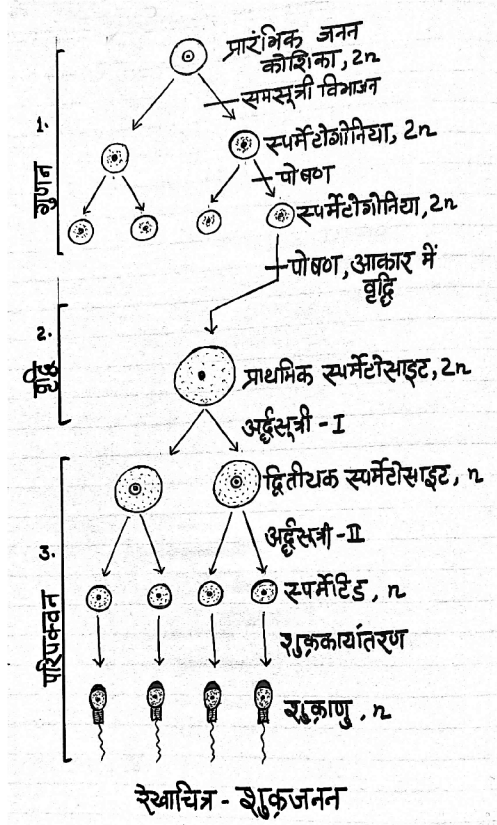 प्रारंभिक जनन
कोशिका, 2n
समसूत्री विभाजन
1. गुणन
स्पर्मेटोगोनिया, 2n
पोषण
स्पर्मेटोगोनिया, 2n
पोषण, आकार में
वृद्धि
2. वृद्धि
प्राथमिक स्पर्मेटोसाइट, 2n
अर्द्धसूत्री - I
द्वितीयक स्पर्मेटोसाइट, n
अर्द्धसूत्री - II
3. परिपक्वन
स्पर्मेटिड, n
शुक्रकायांतरण
शुक्राणु, n
रेखाचित्र - शुक्रजनन